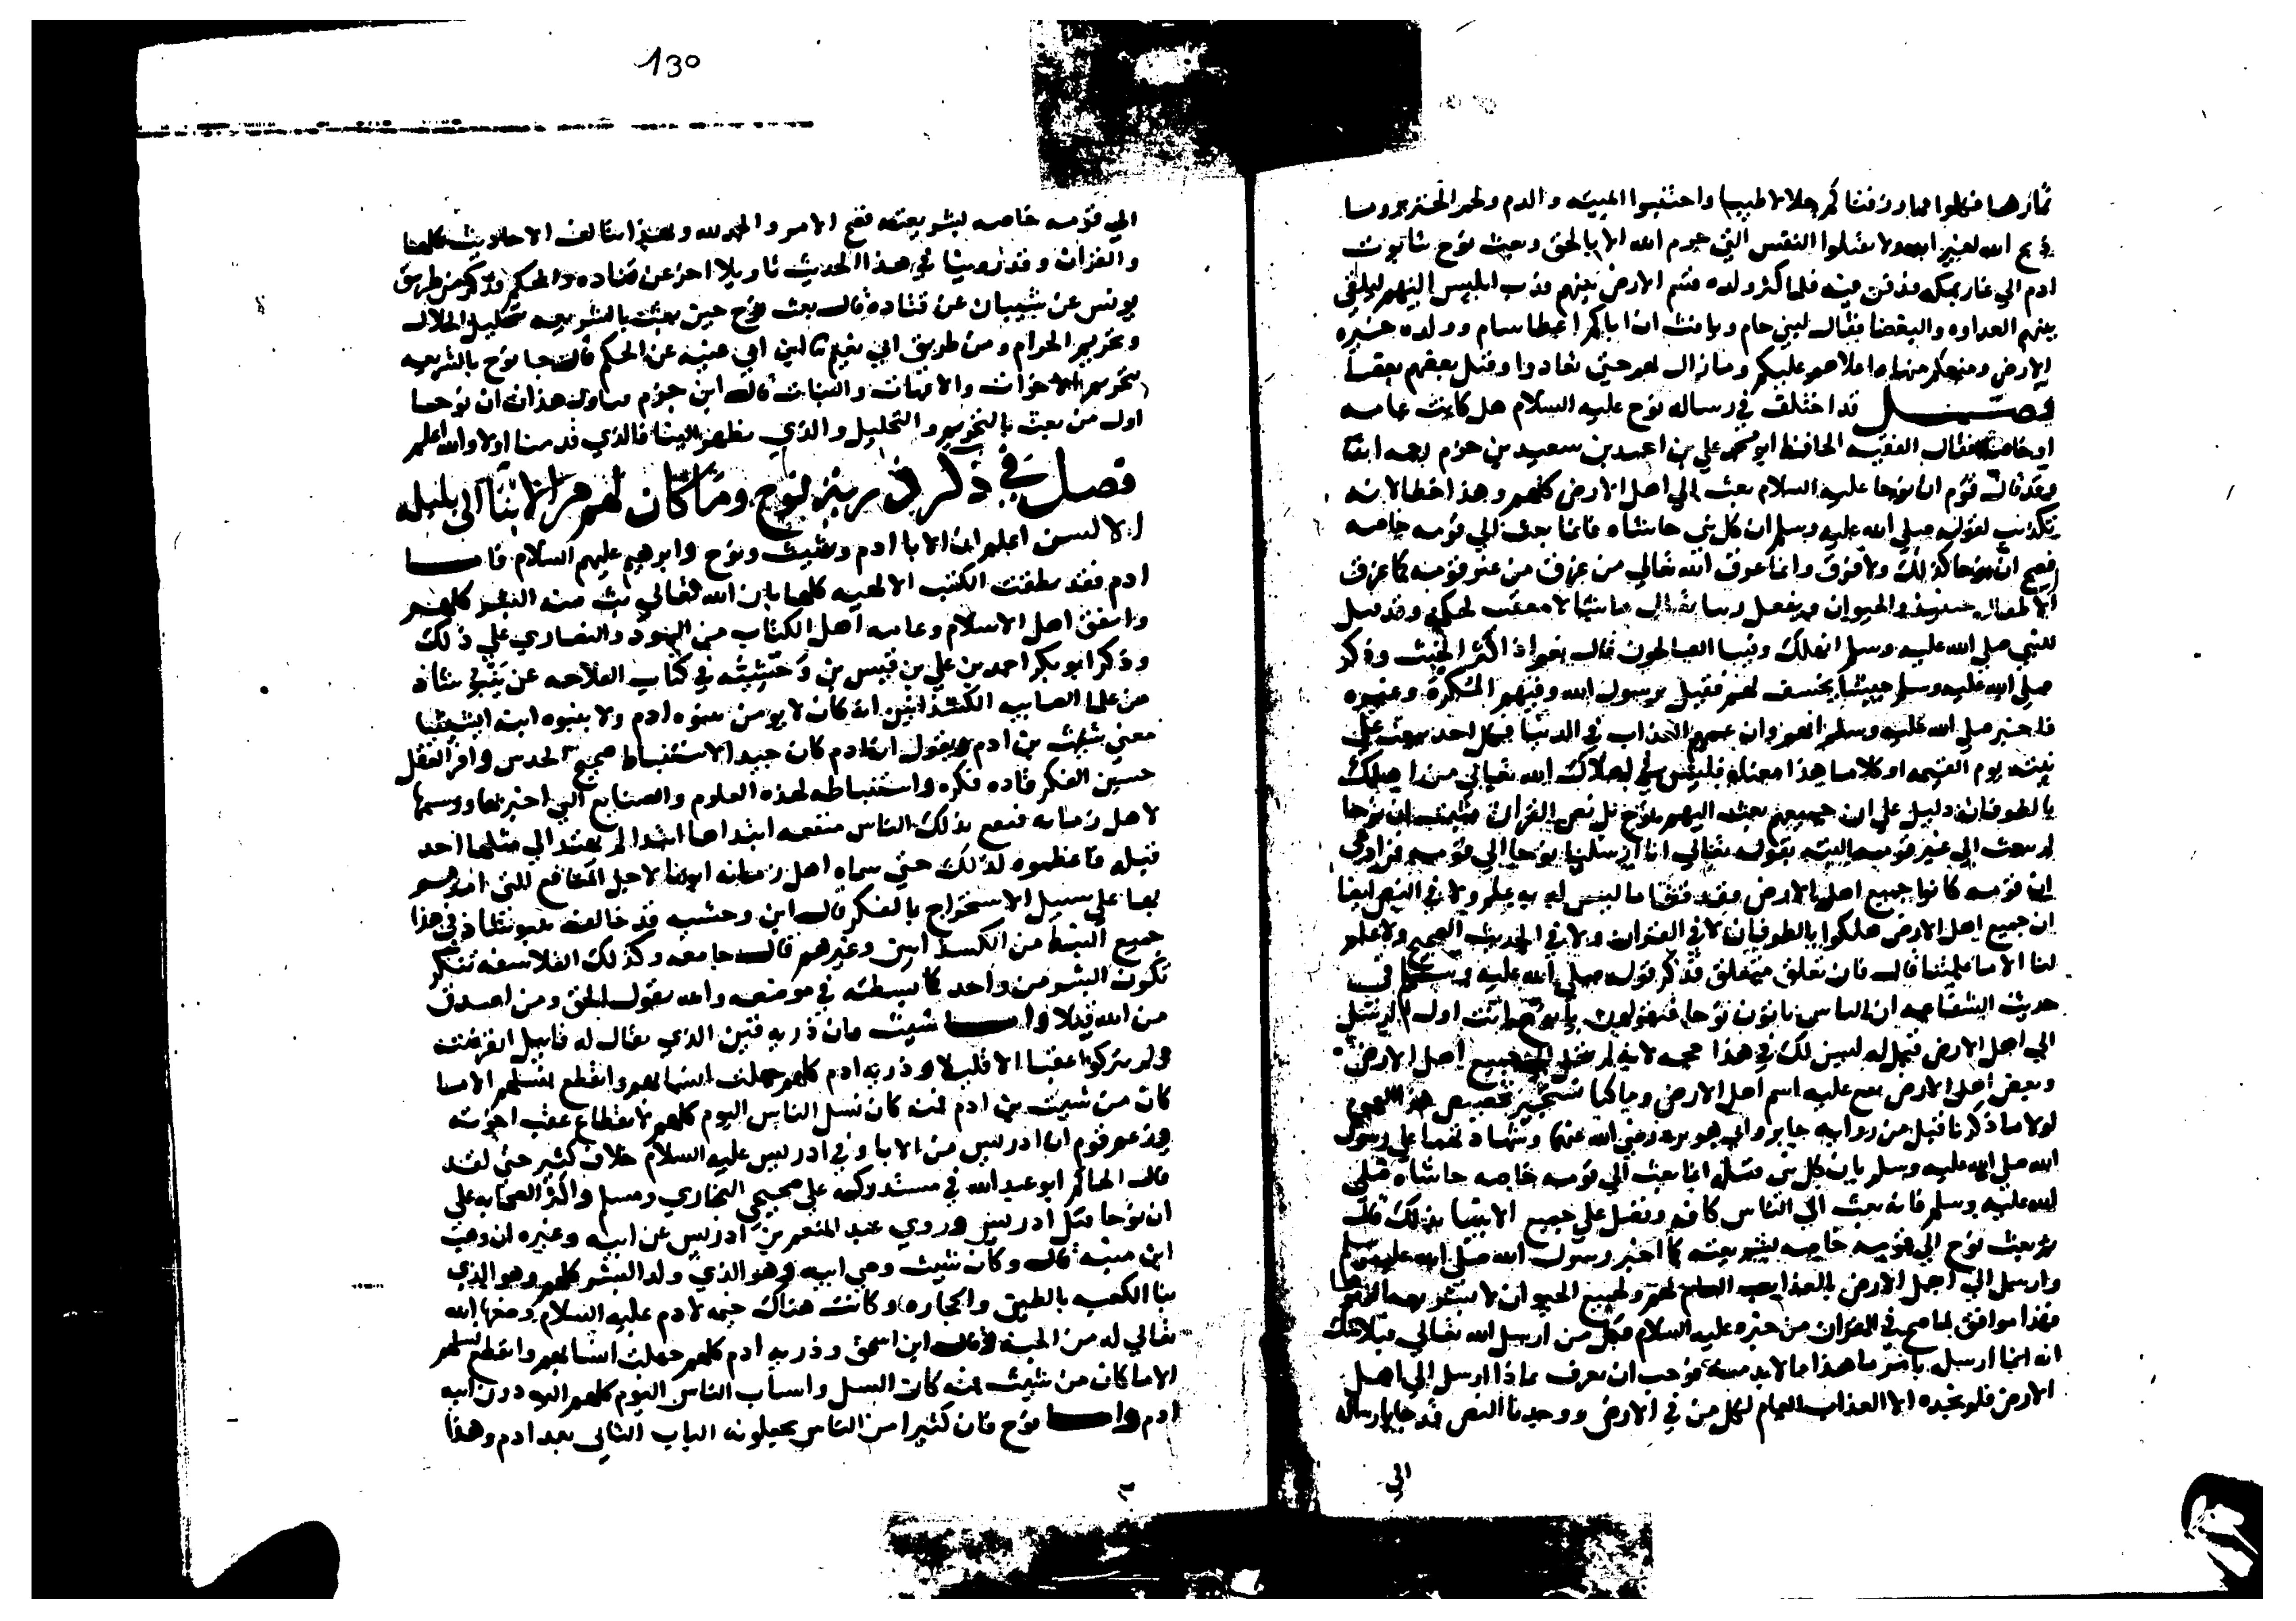 ثمارها فكلوا مما رزقناكم حلالا طيبا واجتنبوا الميته والدم ولحم الخنزير وما
ذبح لله لغير الله ولا تقتلوا النفس التي حرم الله الا بالحق وبعث نوح تابوت
ادم الي غار بمكه فدفن فيه فلما كثر ولده قسم الارض بينهم فدب ابليس اليهم ليلقي
بينهم العداوه والبغضا فقال لبني حام ويافث ان اباكم اعطا سام وولده خيره
الارض ومنعكم منها واعلاهم عليكم وما زال لهم حتي تعادوا وقتل بعضهم بعضا
فصل قد اختلف في رساله نوح عليه السلام هل كانت عامه
او خاصه فقال الفقيه الحافظ ابو محمد علي بن احمد بن سعيد بن حزم رحمه الله
وقد قال قوم ان نوحا عليه السلام بعث الي اهل الارض كلهم وهذا خطا لانه
تكذيب لقوله صلي الله عليه وسلم ان كل نبي حاشاه فانما بعث الي قومه خاصه
فصح ان نوحا كذلك ولا فرق وانما غرق الله تعالي من غرق من غير قومه كما غرق
الاطفال حينئذ والحيوان ويفعل ربنا تعالي ما يشا لا معقب لحكمه وقد قيل
للنبي صلي الله عليه وسلم انهلك وفينا الصالحون قال نعم اذا اكثر الخبث وذكر
صلي الله عليه وسلم جيشا يخسف بهم فقيل يرسول الله وفيهم المكره وغيره
فاخبر صلي الله عليه وسلم انهم وان عمهم العذاب في الدنيا فكل احد يبعث علي
نيته يوم القيمه او كلاما هذا معناه فليس في اهلاك الله تعالي من اهلك
بالطوفان دليل علي ان جميعهم بعث اليهم نوح بل نص القران يثبت ان نوحا
لم يبعث الي غير قومه البته بقوله تعالي انا ارسلنا نوحا الي قومه فمن ادعي
ان قومه كانوا جميع اهل الارض فقد قفا ما ليس له به علم ولا في النص ايضا
ان جميع اهل الارض هلكوا بالطوفان لا في القران ولا في الحديث الصحيح ولا علم
لنا الا ما علمتنا قال فان تعلق متعلق فذكر قوله صلي الله عليه وسلم في
حديث الشفاعه ان الناس ياتون نوحا فيقولون يا نوح انت اول الرسل
الي اهل الارض فيل له ليس لك في هذا حجه لانه لم يقل الي جميع اهل الارض
وبعض اهل الارض يقع عليه اسم اهل الارض وما كنا نستجيز تخصيص هذا العموم
لولا ما ذكرنا قبل من روايه جابر وابي هريره رضي الله عنهما وشهادتهما علي رسول
الله صلي الله عليه وسلم بان كل نبي قبله انما بعث الي قومه خاصه حاشاه صلي
الله عليه وسلم فانه بعث الي الناس كافه وفضل علي جميع الانبيا بذلك قال
فبعث نوح الي قومه خاصه بشريعته كما اخبر رسول الله صلي الله عليه وسلم
وارسل الي اهل الارض بالعذاب العام لهم ولجميع الحيوان لا بشريعه
فهذا موافق لما صح في القران من خبره عليه السلام فكل من ارسل الله تعالي
انه انما ارسل بامر ما هذا ما لا بد منه فوجب ان نعرف بماذا ارسل الي اهل
الارض فلم نجده الا العذاب العام لكل من في الارض ووجدنا النص قد جا بارساله
الي
130
الي قومه خاصه بشريعته فصح الامر والحمد لله وبهذا تتالف الاحاديث كلها
والقران وقد روينا في هذا الحديث تاويلا اخر عن قتاده والحكم فذكر من طريق
يونس عن شيبان عن قتاده قال بعث نوح حين بعث بالشريعه بتحليل الحلال
وتحريم الحرام ومن طريق ابي نعيم ثنا ابن ابي غنيه عن الحكم قال جا نوح بالشريعه
بتحريم الاخوات والامهات والبنات قال ابن حزم فتاول هذان ان نوحا
اول من بعث بالتحريم والتحليل والذي يظهر الينا فالذي قدمنا اولا والله اعلم
فصل في ذكر ذرية نوح وما كان لهم من الانبا الي بلبلة
الالسن اعلم ان الابا ادم وشيث ونوح وابرهيم عليهم السلام فاما
ادم فقد نطقت الكتب الالهيه كلها بان الله تعالي بث منه البشر كلهم
واتفق اهل الاسلام وعامه اهل الكتاب من اليهود والنصاري علي ذلك
وذكر ابو بكر احمد بن علي بن قيس بن وحشيه في كتاب الفلاحه عن ينبوشاذ
من علما الصابيه الكسدانيين انه كان لا يومن بنبوه ادم ولا بنبوه ابنه ايشيثا
معني شيث بن ادم ويقول ان ادم كان جيد الاستنباط صحيح الحدس وافر العقل
حسن الفكر فاده فكره واستنباطه لهذه العلوم والصنايع التي اخترعها ورسمها
لاهل زمانه فنفع بذلك الناس منفعه ابتداها ابتدا لم يهتد الي مثلها احد
قبله فاعظموه لذلك حتي سماه اهل زمانه ابونا لاجل المنافع التي افادهم
بها علي سبيل الاستخراج بالفكر قال ابن وحشيه قد خالف ينبوشاذ في هذا
جميع النبط من الكسدانيين وغيرهم قال جامعه وكذلك الفلاسفه تنكر
تكون البشر من واحد كما بسطته في موضعه والله يقول الحق ومن اصدق
من الله قيلا واما شيث فان ذريه قين الذي يقال له قابيل انقرضت
ولم يتركوا عقبا الا قليلا وذريه ادم كلهم جهلت انسابهم وانقطع نسلهم الا ما
كان من شيث بن ادم فمنه كان نسل الناس اليوم كلهم لانقطاع عقب اخوته
وزعم قوم ان ادريس من الابا وفي ادريس عليه السلام خلاف كثير حتي لقد
قال الحاكم ابو عبد الله في مستدركه علي صحيحي البخاري ومسلم واكثر الصحابه علي
ان نوحا قبل ادريس وروي عبد المنعم بن ادريس عن ابيه وغيره ان وهب
ابن منبه قال وكان شيث وصي ابيه وهو الذي ولد البشر كلهم وهو الذي
بنا الكعبه بالطين والحجاره وكانت هناك خيمه لادم عليه السلام وضعها الله
تعالي له من الجنة وقال ابن اسحق وذريه ادم كلهم جهلت انسابهم وانقطع نسلهم
الا ما كان من شيث فمنه كان النسل وانساب الناس اليوم كلهم اليه دون ابيه
ادم واما نوح فان كثيرا من الناس يجعلونه الباب الثاني بعد ادم وهذا